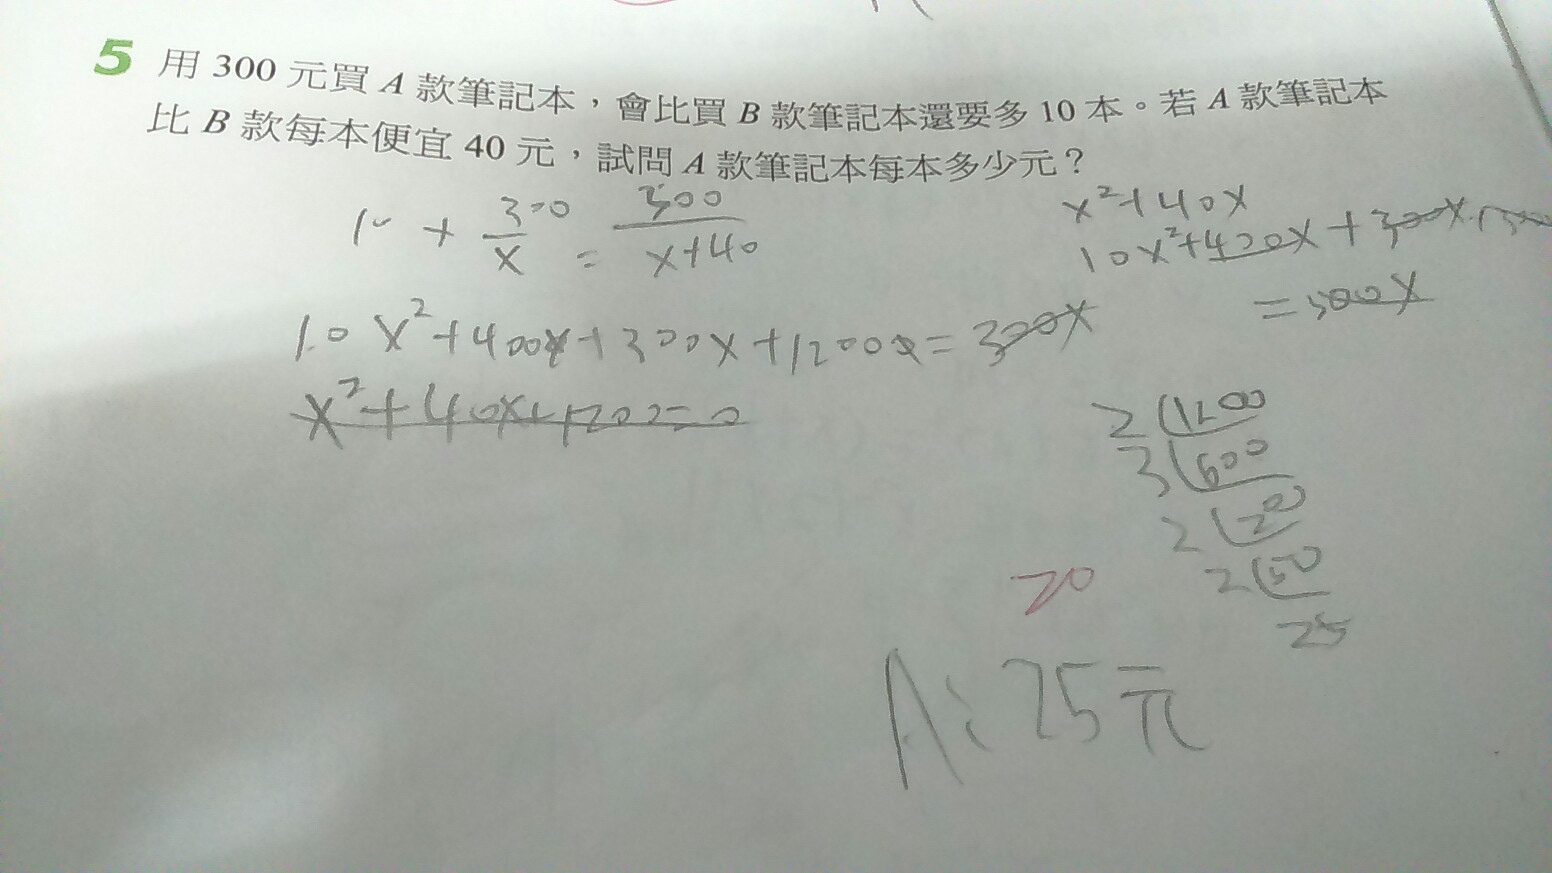 5 用 300 元買 A 款筆記本，會比買 B 款筆記本還要多 10 本。若 A 款筆記本
比 B 款每本便宜 40 元，試問 A 款筆記本每本多少元？
10 + 300/x = 300/x+40
x²+40x
10x²+400x+300x
=300x
10x²+400x+300x+12000=300x
x²+40x+1200=0
2 1200
3 600
2 200
2 50
25
20
A: 25元